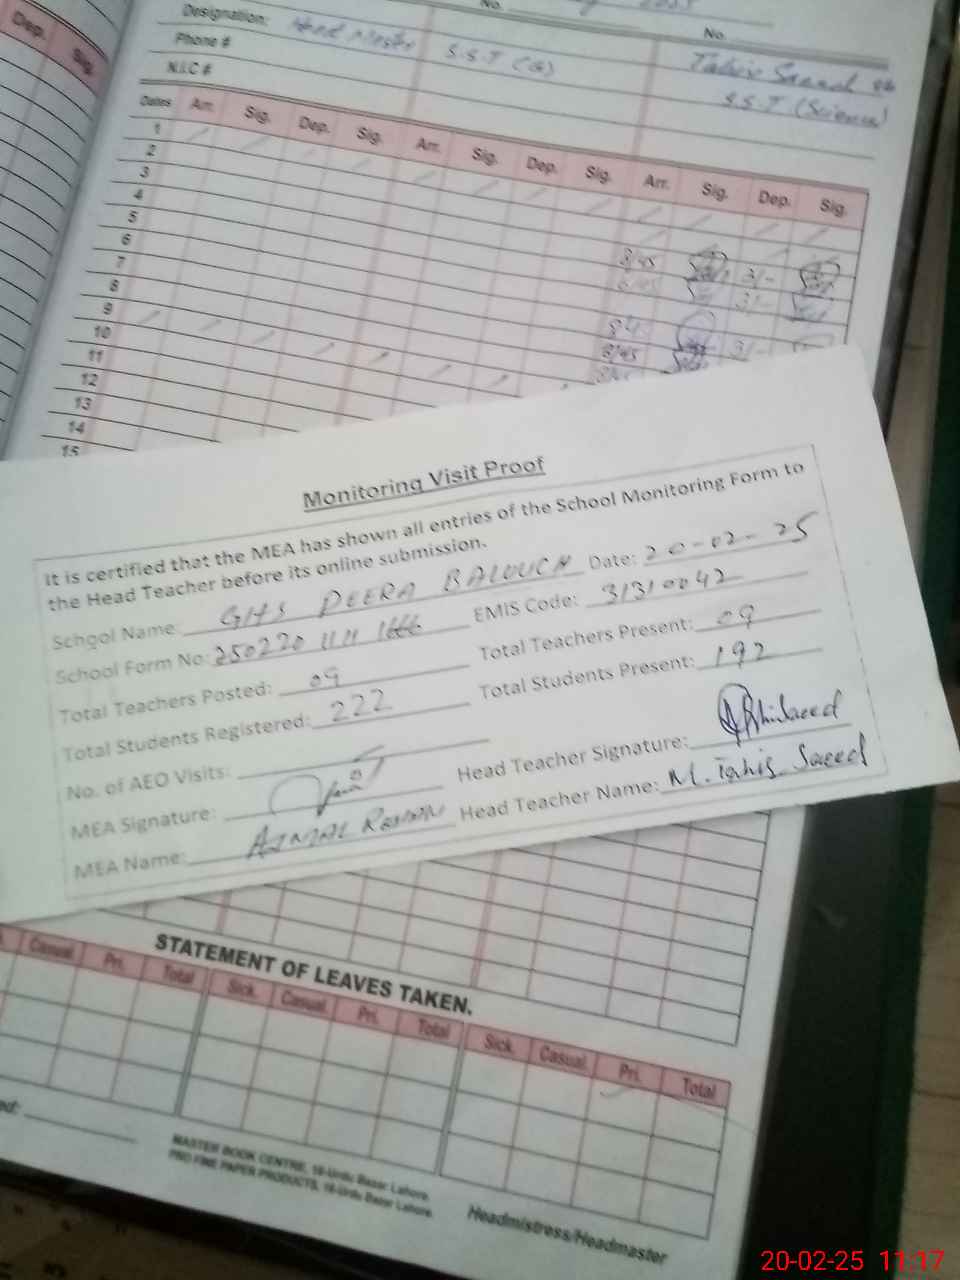 Dep. Sig.
No. No.
Designation: Head Master S.S.T (G) S.S.T (Science)
Phone #
N.I.C #
Dates Arr. Sig. Dep. Sig. Arr. Sig. Dep. Sig. Arr. Sig. Dep. Sig.
1
2
3
4
5
6
7
8
9
10
11
12
13
14
15
8/45 3/-
8/45 3/-
8/45 3/-
8/45
Monitoring Visit Proof
It is certified that the MEA has shown all entries of the School Monitoring Form to
the Head Teacher before its online submission.
School Name: GHS PEERA BALOUCH Date: 20-02-25
School Form No: EMIS Code: 31310042
Total Teachers Posted: 09 Total Teachers Present: 09
Total Students Registered: 222 Total Students Present: 192
No. of AEO Visits:
MEA Signature: Head Teacher Signature:
MEA Name: Head Teacher Name: M. Tahir Saeed
STATEMENT OF LEAVES TAKEN.
Casual Pri. Total Sick. Casual Pri. Total Sick Casual Pri. Total
MASTER BOOK CENTRE, 18-Urdu Bazar Lahore.
PRO FINE PAPER PRODUCTS, 18-Urdu Bazar Lahore.
Headmistress/Headmaster
20-02-25 11:17